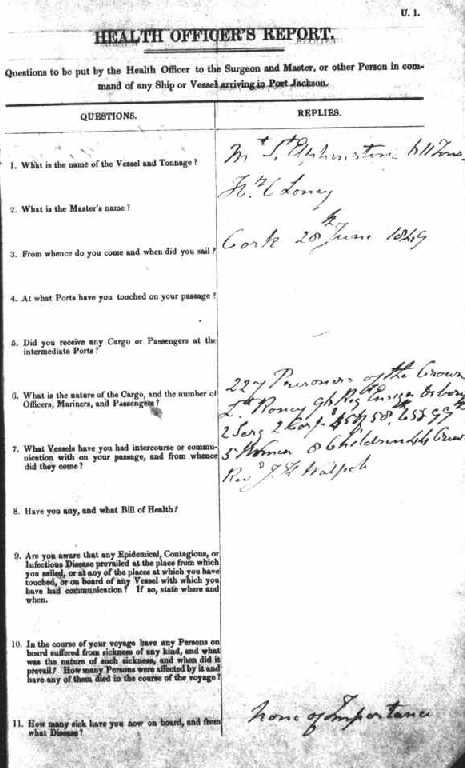 U. 1.
HEALTH OFFICER'S REPORT.
Questions to be put by the Health Officer to the Surgeon and Master, or other Person in com-
mand of any Ship or Vessel arriving in Port Jackson.
QUESTIONS.
REPLIES.
1. What is the name of the Vessel and Tonnage?
Mt St Elphinstone 611 Tons
2. What is the Master's name?
Loney
3. From whence do you come and when did you sail?
Cork 28th June 1849
4. At what Ports have you touched on your passage?
5. Did you receive any Cargo or Passengers at the
intermediate Ports?
6. What is the nature of the Cargo, and the number of
Officers, Mariners, and Passengers?
227 Prisoners of the Crown
Lt Roney 96 Reg Ensign
2 Serg 2 Corp 58th 65 & 99th
5 Women 8 Children Crew
Revd J H
7. What Vessels have you had intercourse or commu-
nication with on your passage, and from whence
did they come?
8. Have you any, and what Bill of Health?
9. Are you aware that any Epidemical, Contagious, or
Infectious Disease prevailed at the place from which
you sailed, or at any of the places at which you have
touched, or on board of any Vessel with which you
have had communication? If so, state where and
when.
10. In the course of your voyage have any Persons on
board suffered from sickness of any kind, and what
was the nature of such sickness, and when did it
prevail? How many Persons were affected by it and
have any of them died in the course of the voyage?
11. How many sick have you now on board, and from
what Disease?
none of Importance